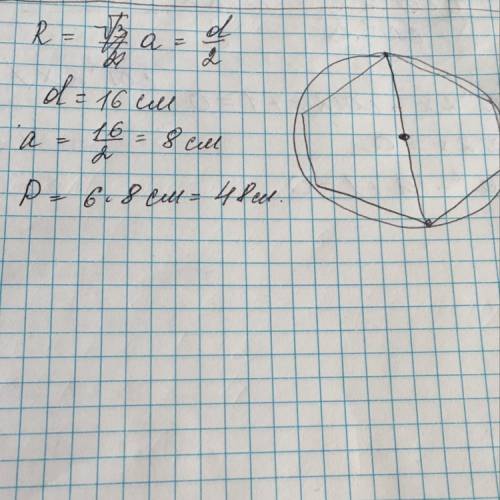 R = a = d/2
d = 16 см
a = 16/2 = 8 см
P = 6 · 8 см = 48 см.